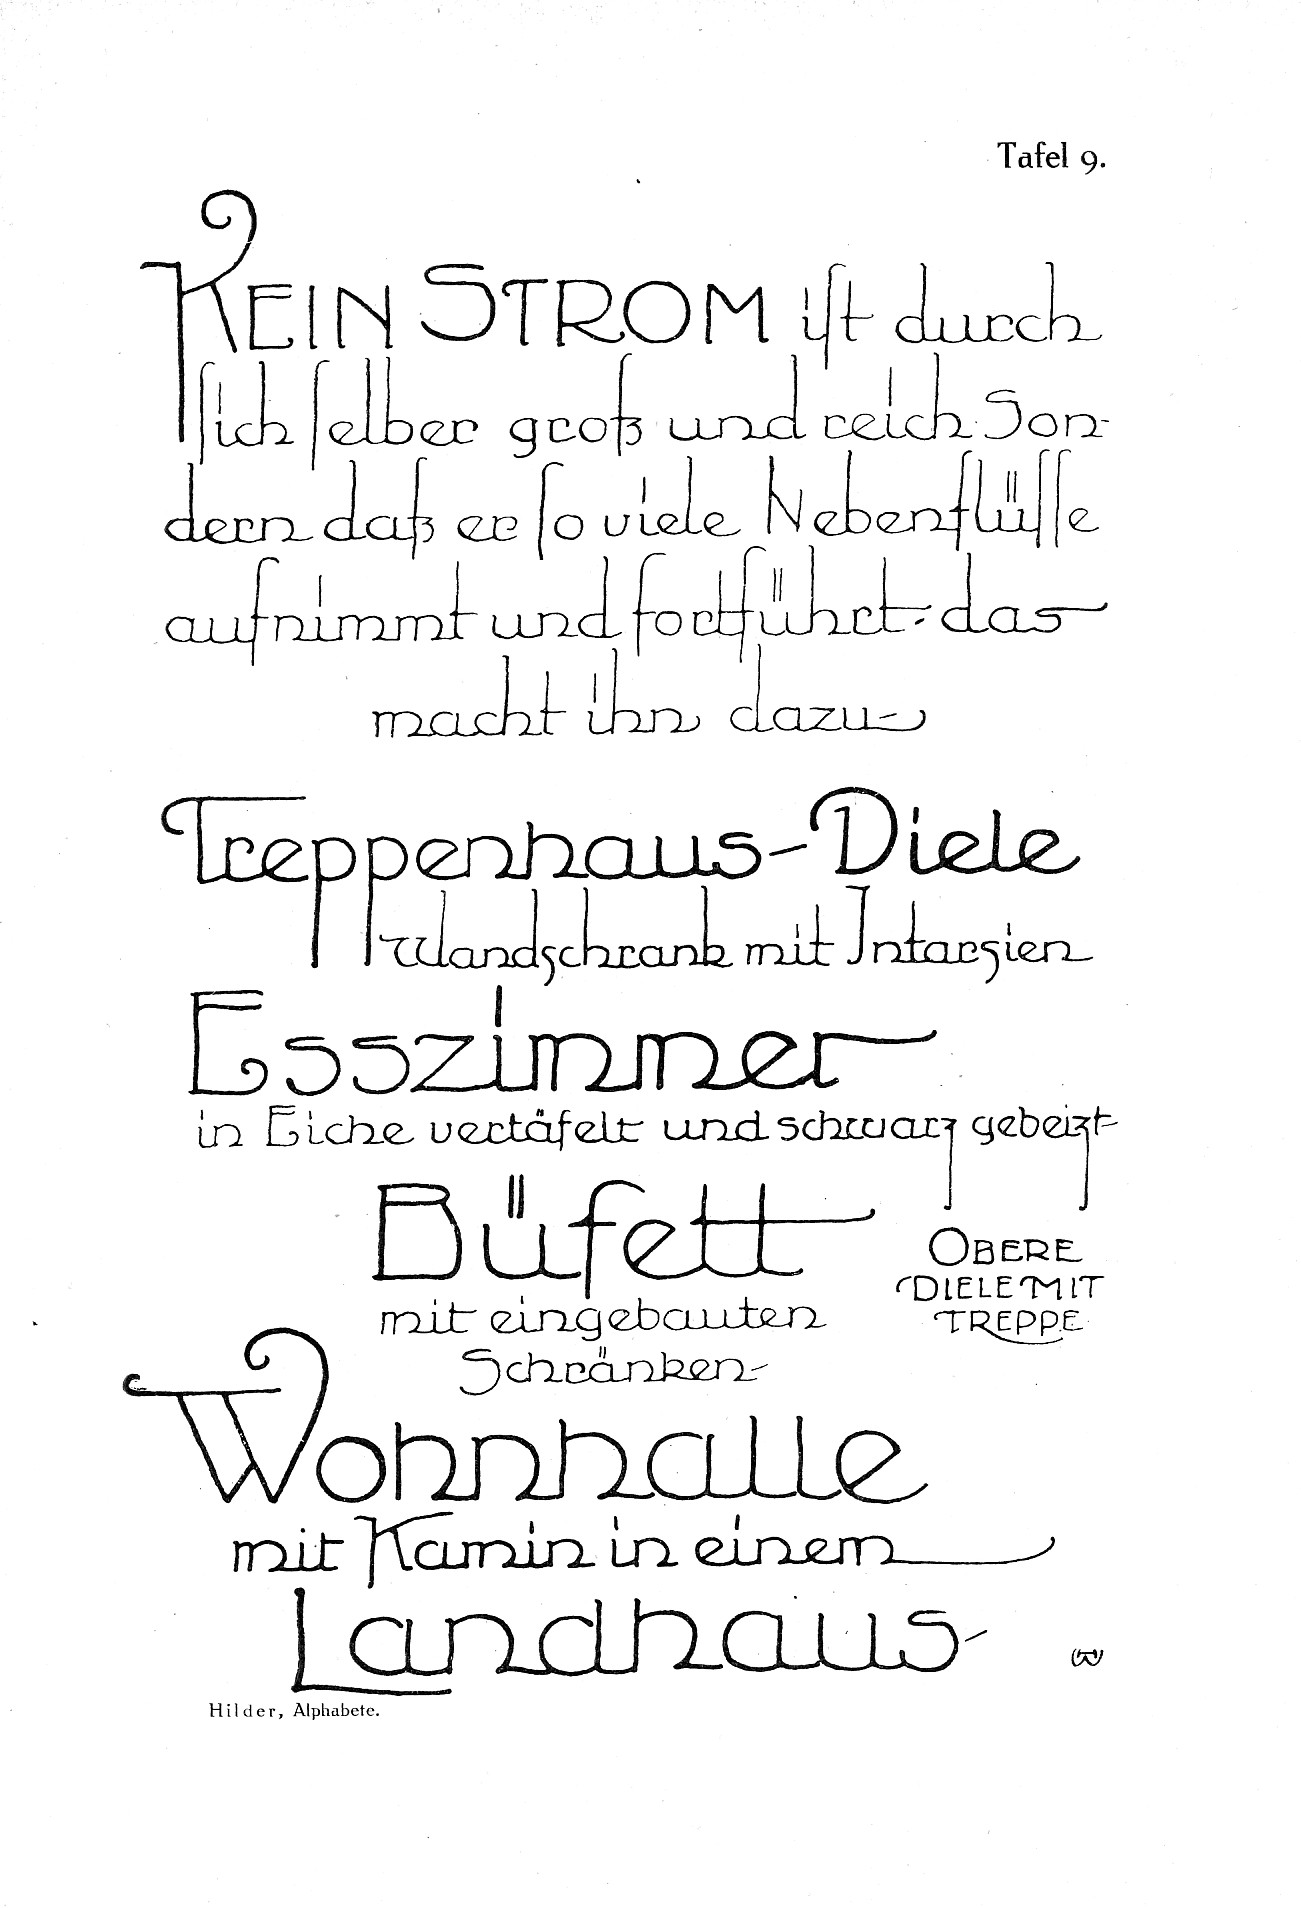 Tafel 9.
KEIN STROM iſt durch
ſich ſelber groß und reich Son-
dern daß er ſo viele Nebenflüſſe
aufnimmt und fortführt - das
macht ihn dazu -
Treppenhaus - Diele
Wandschrank mit Intarsien
Esszimmer
in Eiche vertäfelt und schwarz gebeizt -
Büfett
mit eingebauten
Schränken -
OBERE
DIELE MIT
TREPPE
Wohnhalle
mit Kamin in einem
Landhaus -
Hilder, Alphabete.